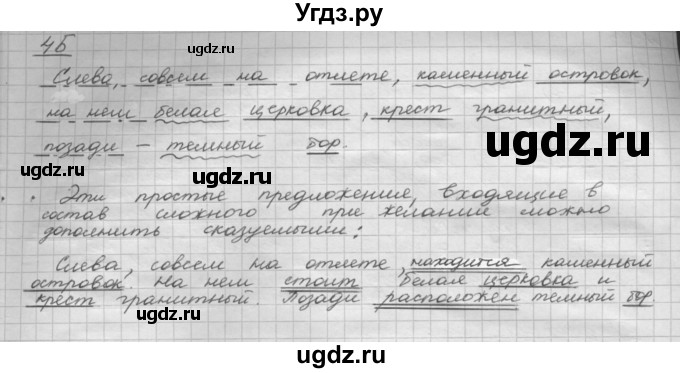 Угдз.ру
4Б
Слева, совсем на отлете, каменный островок,
на нем белая церковка, крест гранитный,
позади - темный бор.
Эти простые предложения, входящие в
состав сложного при желании можно
дополнить сказуемыми:
Слева, совсем на отлете, находится каменный
островок. На нем стоит белая церковка и
крест гранитный. Позади расположен темный бор.
ugdz.ru
ugdz.ru
ugdz.ru
ugdz.ru
ugdz.ru
ugdz.ru
ugdz.ru
ugdz.ru
ugdz.ru